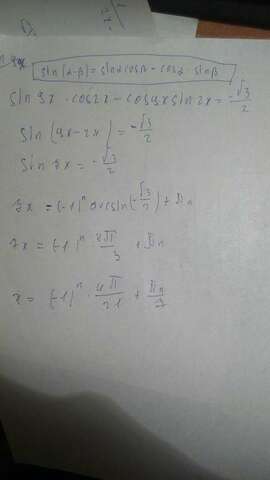 sin(α-β)=sinαcosβ-cosα·sinβ
sin 9x · cos2x - cos9x sin 2x = -√3/2
sin(9x-2x) = -√3/2
sin 7x = -√3/2
7x = (-1)ⁿ arcsin(-√3/2) + πn
7x = (-1)ⁿ · 4π/3 + πn
x = (-1)ⁿ · 4π/21 + πn/7